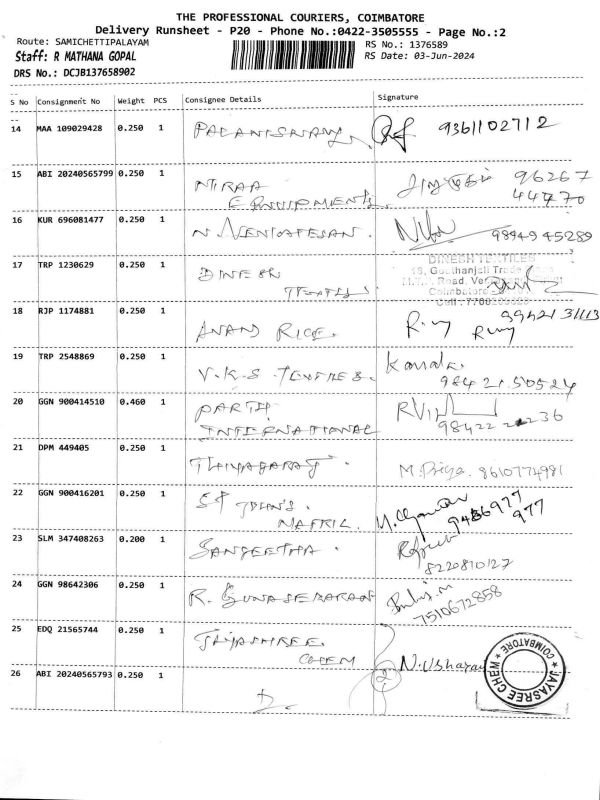 THE PROFESSIONAL COURIERS, COIMBATORE
Delivery Runsheet - P20 - Phone No.:0422-3505555 - Page No.:2
Route: SAMICHETTIPALAYAM
RS No.: 1376589
Staff: R MATHANA GOPAL
RS Date: 03-Jun-2024
DRS No.: DCJB137658902
S No Consignment No Weight PCS Consignee Details Signature
14 MAA 109029428 0.250 1 PALANISWAMY. 9361102712
15 ABI 20240565799 0.250 1 NIRAA 96267
EQUIPMENTS. 44770
16 KUR 696081477 0.250 1 N. VENKATESAN. 98949 45289
17 TRP 1230629 0.250 1 DINESH DINESH TEXTILES
TEXTILES
18 RJP 1174881 0.250 1 ANAND RICE. 99421 31113
19 TRP 2548869 0.250 1 V.K.S TEXTILES. Kamala.
98421.50524
20 GGN 900414510 0.460 1 PARTH
INTERNATIONAL 98422 236
21 DPM 449405 0.250 1 THIYAGARAJ. M. Priya. 8610774981
22 GGN 900416201 0.250 1 SP 9486977
977
23 SLM 347408263 0.200 1 SANGEETHA.
8220810127
24 GGN 98642306 0.250 1 R. GUNASEKARAN
7510672858
25 EDQ 21565744 0.250 1 JAYASHREE
CHEM N. Usharani
JAYASREE CHEM COIMBATORE
26 ABI 20240565793 0.250 1